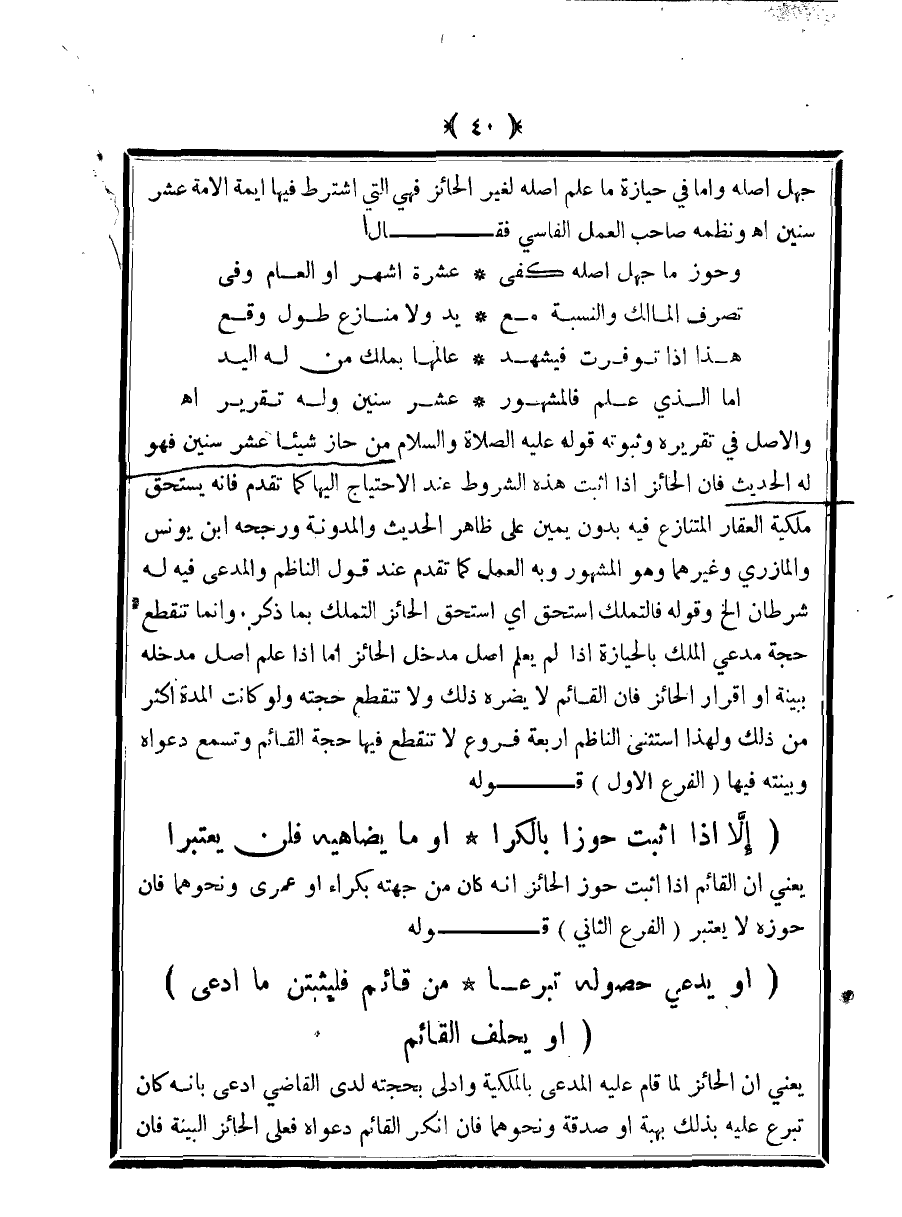 ﴿ ٤٠ ﴾
جهل اصله واما في حيازة ما علم اصله لغير الحائز فهي التي اشترط فيها ايمة الامة عشر
سنين اه ونظمه صاحب العمل الفاسي فقـــــــال
وحوز ما جهل اصله كفى * عشرة اشهر او العام وفى
تصرف المالك والنسبة مع * يد ولا منازع طول وقع
هذا اذا توفرت فيشهد * عالمها بملك من له اليد
اما الذي علم فالمشهور * عشر سنين وله تقرير اه
والاصل في تقريره وثبوته قوله عليه الصلاة والسلام من حاز شيئا عشر سنين فهو
له الحديث فان الحائز اذا اثبت هذه الشروط عند الاحتياج اليها كما تقدم فانه يستحق
ملكية العقار المتنازع فيه بدون يمين على ظاهر الحديث والمدونة ورجحه ابن يونس
والمازري وغيرهما وهو المشهور وبه العمل كما تقدم عند قول الناظم والمدعى فيه له
شرطان الخ وقوله فالتملك استحق اي استحق الحائز التملك بما ذكر. وانما تنقطع
حجة مدعي الملك بالحيازة اذا لم يعلم اصل مدخل الحائز اما اذا علم اصل مدخله
ببينة او اقرار الحائز فان القائم لا يضره ذلك ولا تنقطع حجته ولو كانت المدة اكثر
من ذلك ولهذا استثنى الناظم اربعة فروع لا تنقطع فيها حجة القائم وتسمع دعواه
وبينته فيها ( الفرع الاول ) قـــــــوله
( إلَّا اذا اثبت حوزا بالكرا * او ما يضاهيه فلن يعتبرا
يعني ان القائم اذا اثبت حوز الحائز انه كان من جهته بكراء او عمرى ونحوهما فان
حوزه لا يعتبر ( الفرع الثاني ) قـــــــوله
( او يدعي حصوله تبرعا * من قائم فليثبتن ما ادعى )
( او يحلف القائم
يعني ان الحائز لما قام عليه المدعى بالملكية وادلى بحجته لدى القاضي ادعى بانه كان
تبرع عليه بذلك بهبة او صدقة ونحوهما فان انكر القائم دعواه فعلى الحائز البينة فان